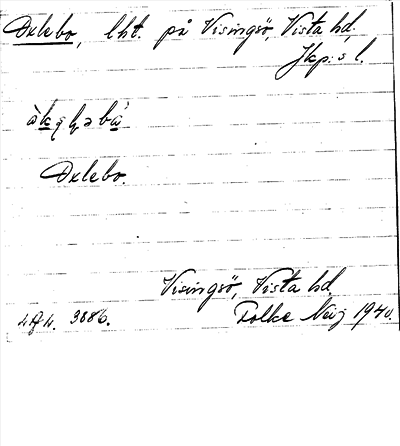 Oxlebo, lht. på Visingsö, Vista hd.
Jkp:s l.
Oxlebo.
Visingsö, Vista hd.
3886. Folke 1940.